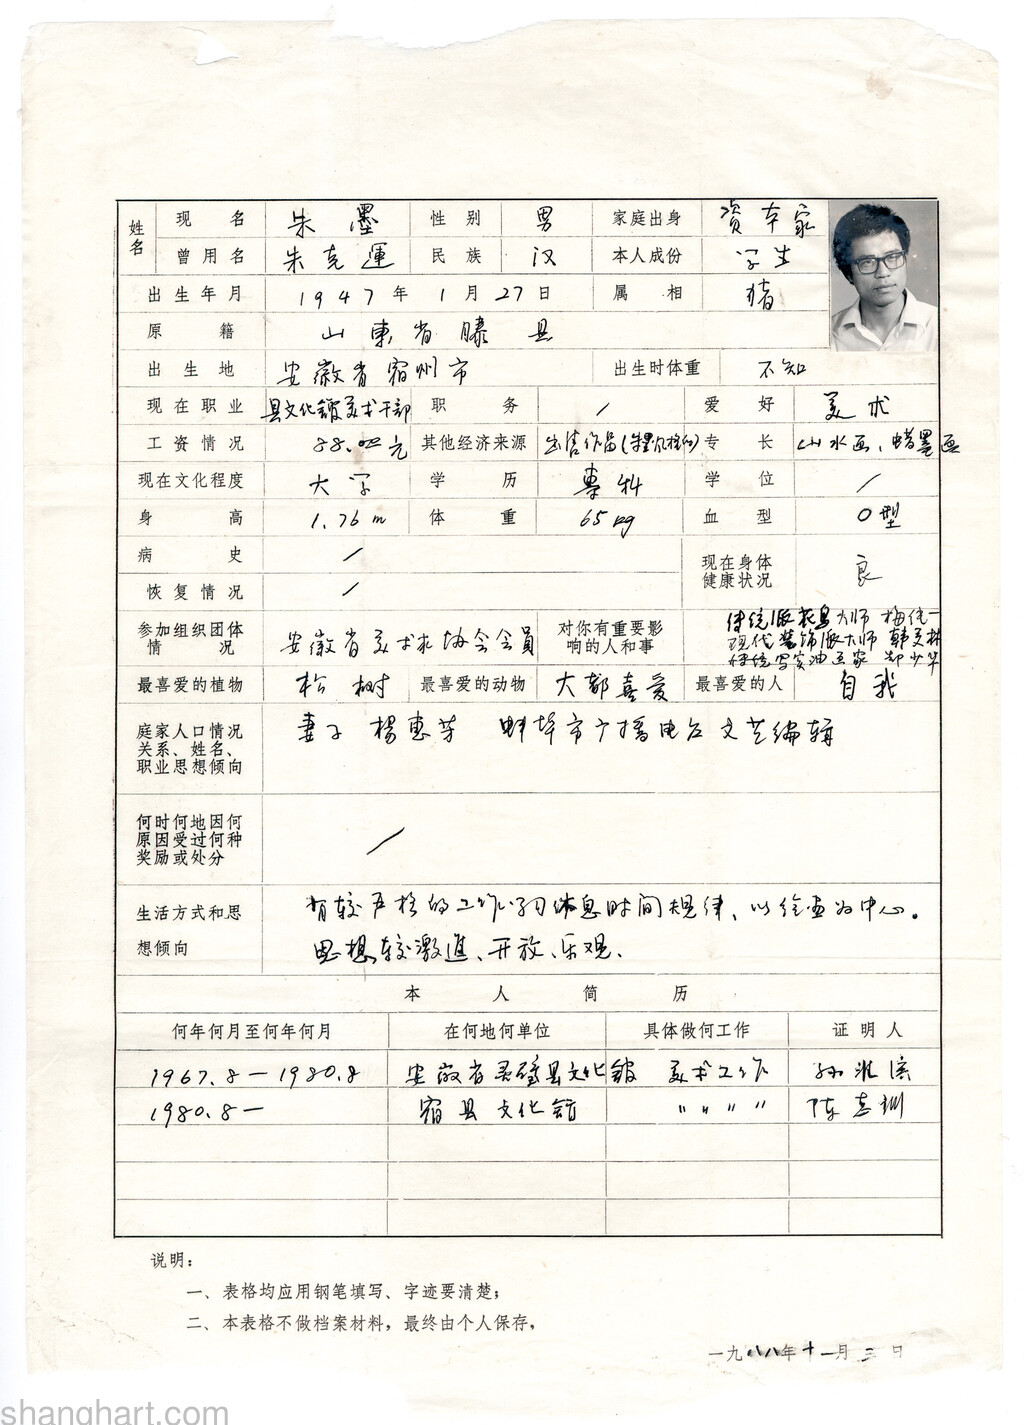 姓名 现名 朱墨 性别 男 家庭出身 资本家
曾用名 朱克運 民族 汉 本人成份 学生
出生年月 1947年1月27日 属相 猪
原籍 山東省滕县
出生地 安徽省宿州市 出生时体重 不知
现在职业 县文化舘美术干部 职务 / 爱好 美术
工资情况 88.00元 其他经济来源 出售作品 专长 山水画、蜡墨画
现在文化程度 大学 学历 專科 学位 /
身高 1.76m 体重 65kg 血型 O型
病史 / 现在身体健康状况 良
恢复情况 /
参加组织团体情况 安徽省美术家协会会员 对你有重要影响的人和事 传统派花鸟大师 梅纯一
现代装饰派大师 韩美林
传统写实油画家 鄭少华
最喜爱的植物 松树 最喜爱的动物 大都喜爱 最喜爱的人 自我
庭家人口情况关系、姓名、职业思想倾向 妻子 楊惠芳 蚌埠市广播电台文艺编辑
何时何地因何原因受过何种奖励或处分 /
生活方式和思想倾向 有较严格的工作学习休息时间规律、以绘画为中心。
思想较激進、开放、乐观、
本人简历
何年何月至何年何月 在何地何单位 具体做何工作 证明人
1967.8—1980.8 安徽省灵璧县文化舘 美术工作 孙淮滨
1980.8— 宿县文化舘 〃〃〃〃 陈志訓
说明：
一、表格均应用钢笔填写、字迹要清楚；
二、本表格不做档案材料，最终由个人保存，
一九八八年十一月三日
shanghart.com